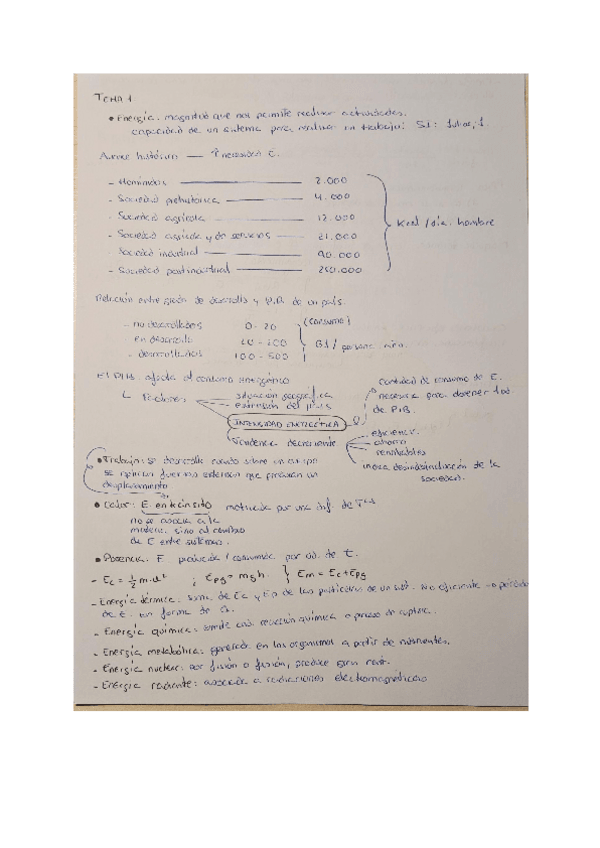 TEMA 1
• Energía: magnitud que nos permite realizar actividades.
capacidad de un sistema para realizar un trabajo! SI: Julio, J.
Avance histórico — ↑ necesidad E.
- Homínidos — 2.000
- Sociedad prehistórica — 4.000
- Sociedad agrícola — 12.000
- Sociedad agrícola y de servicios — 21.000
- Sociedad industrial — 90.000
- Sociedad postindustrial — 250.000
Kcal / día. hombre
Relación entre grado de desarrollo y P.I.B. de un país.
- no desarrollados 0-20
en desarrollo 20 - 100
- desarrollados 100 - 500
(consumo)
GJ / persona año.
El PIB afecta al consumo energético
Factores:
situación geográfica
extensión del país
INTENSIDAD ENERGÉTICA
tendencia decreciente
cantidad de consumo de E.
necesaria para obtener 1 ud.
de P.I.B.
eficiencia
ahorro
renovables
desindustrialización de la
sociedad.
• Trabajo: se desarrolla cuando sobre un cuerpo
se aplican fuerzas externas que producen un
desplazamiento
• Calor: E. en tránsito motivada por una dif. de Tª
no se asocia a la
materia, sino al cambio
de E entre sistemas.
• Potencia: E producida / consumida por ud. de t.
- Ec = ½ m·v² ; Epg = mgh. } Em = Ec + Epg
- Energía térmica: suma de Ec y Ep de las partículas de un sist. No eficiente → pérdida
de E. en forma de Q.
- Energía química: una reacción química o proceso de ruptura.
- Energía metabólica: generada en los organismos a partir de nutrientes.
- Energía nuclear: por fisión o fusión, produce gran
- Energía radiante: asociada a radiaciones electromagnéticas